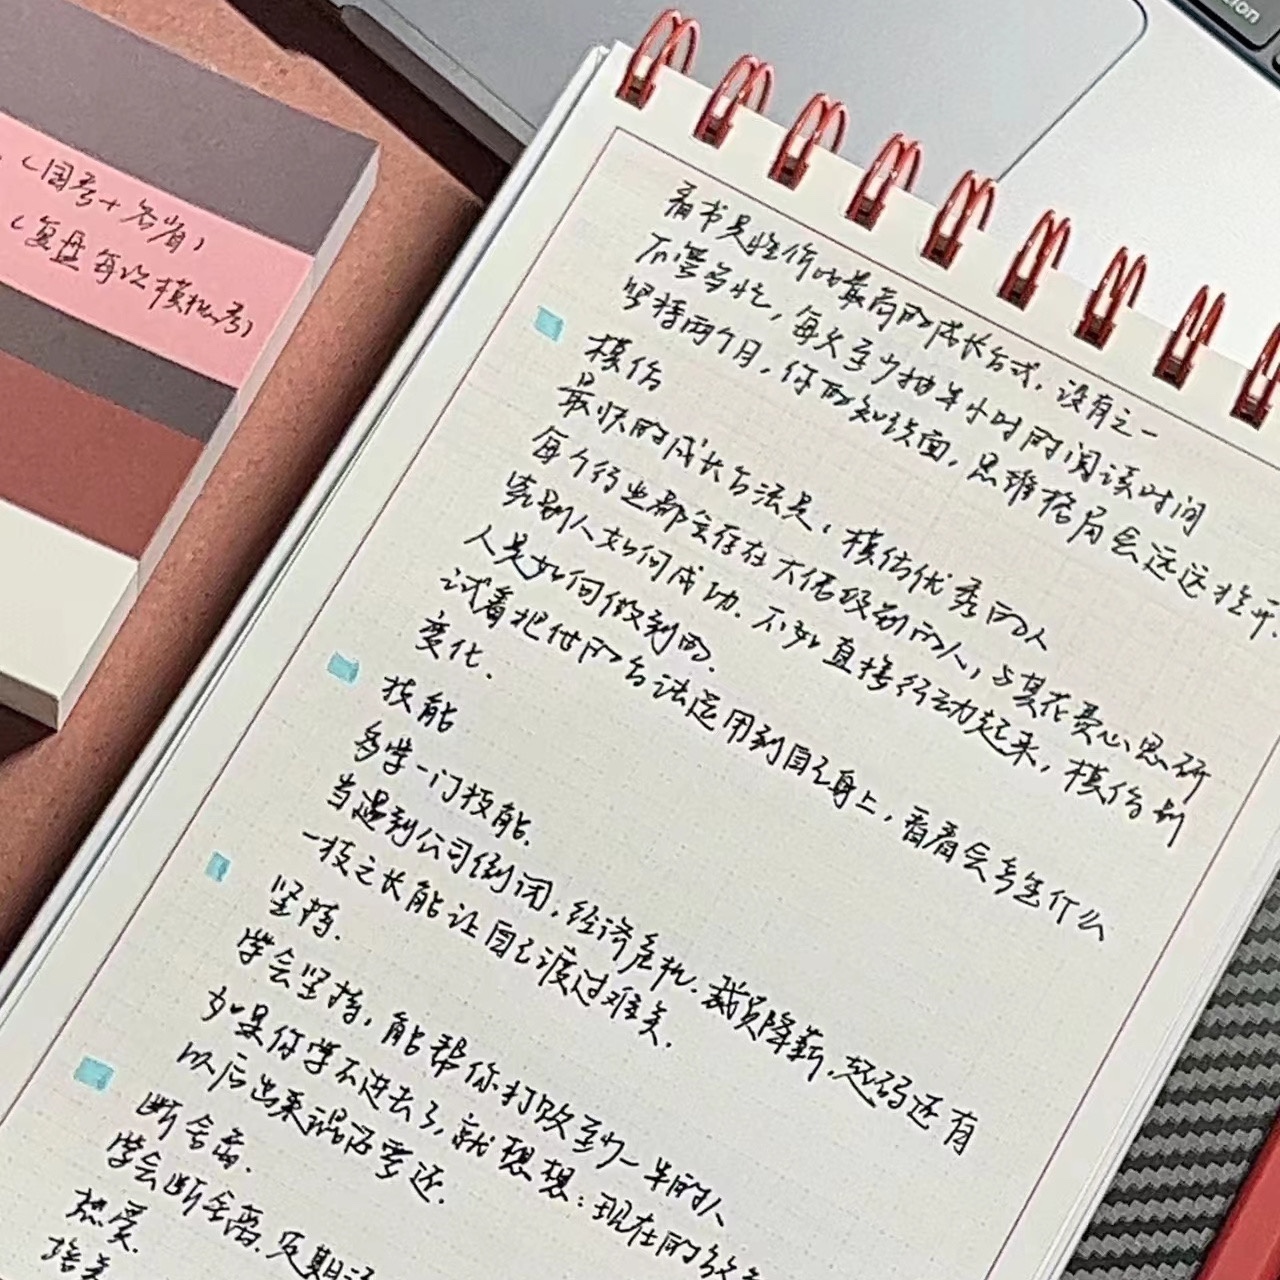 （国考+各省）
（复盘每次模拟考）
看书是性价比最高的成长方式，没有之一
不管多忙，每天至少抽半小时的阅读时间
坚持两个月，你的知识面，思维格局会远远拉开
模仿
最快的成长方法是，模仿优秀的人
每个行业都会存在大佬级别的人，与其花费心思研
究别人如何成功，不如直接行动起来，模仿别
人是如何做到的．
试着把他的方法运用到自己身上，看看会产生什么
变化．
技能
多学一门技能．
当遇到公司倒闭，经济危机，裁员降薪，起码还有
一技之长能让自己渡过难关．
坚持．
学会坚持，能帮你打败至少一半的人
如果你学不进去了，就想想：现在的
以后出来混还要还．
断舍离．
学会断舍离，
热爱．
培养